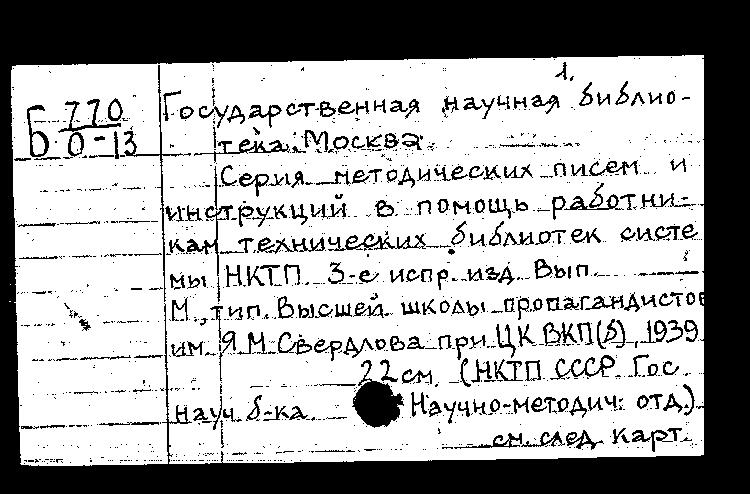 1.
Б 770
О-13
Государственная научная библио-
тека. Москва.
Серия методических писем и
инструкций в помощь работни-
кам технических библиотек систе
мы НКТП. 3-е испр. изд. Вып.
М., тип. Высшей школы пропагандистов
им. Я.М. Свердлова при ЦК ВКП(б), 1939
22 см. (НКТП СССР. Гос.
науч. б-ка. Научно-методич. отд.)
см. след. карт.